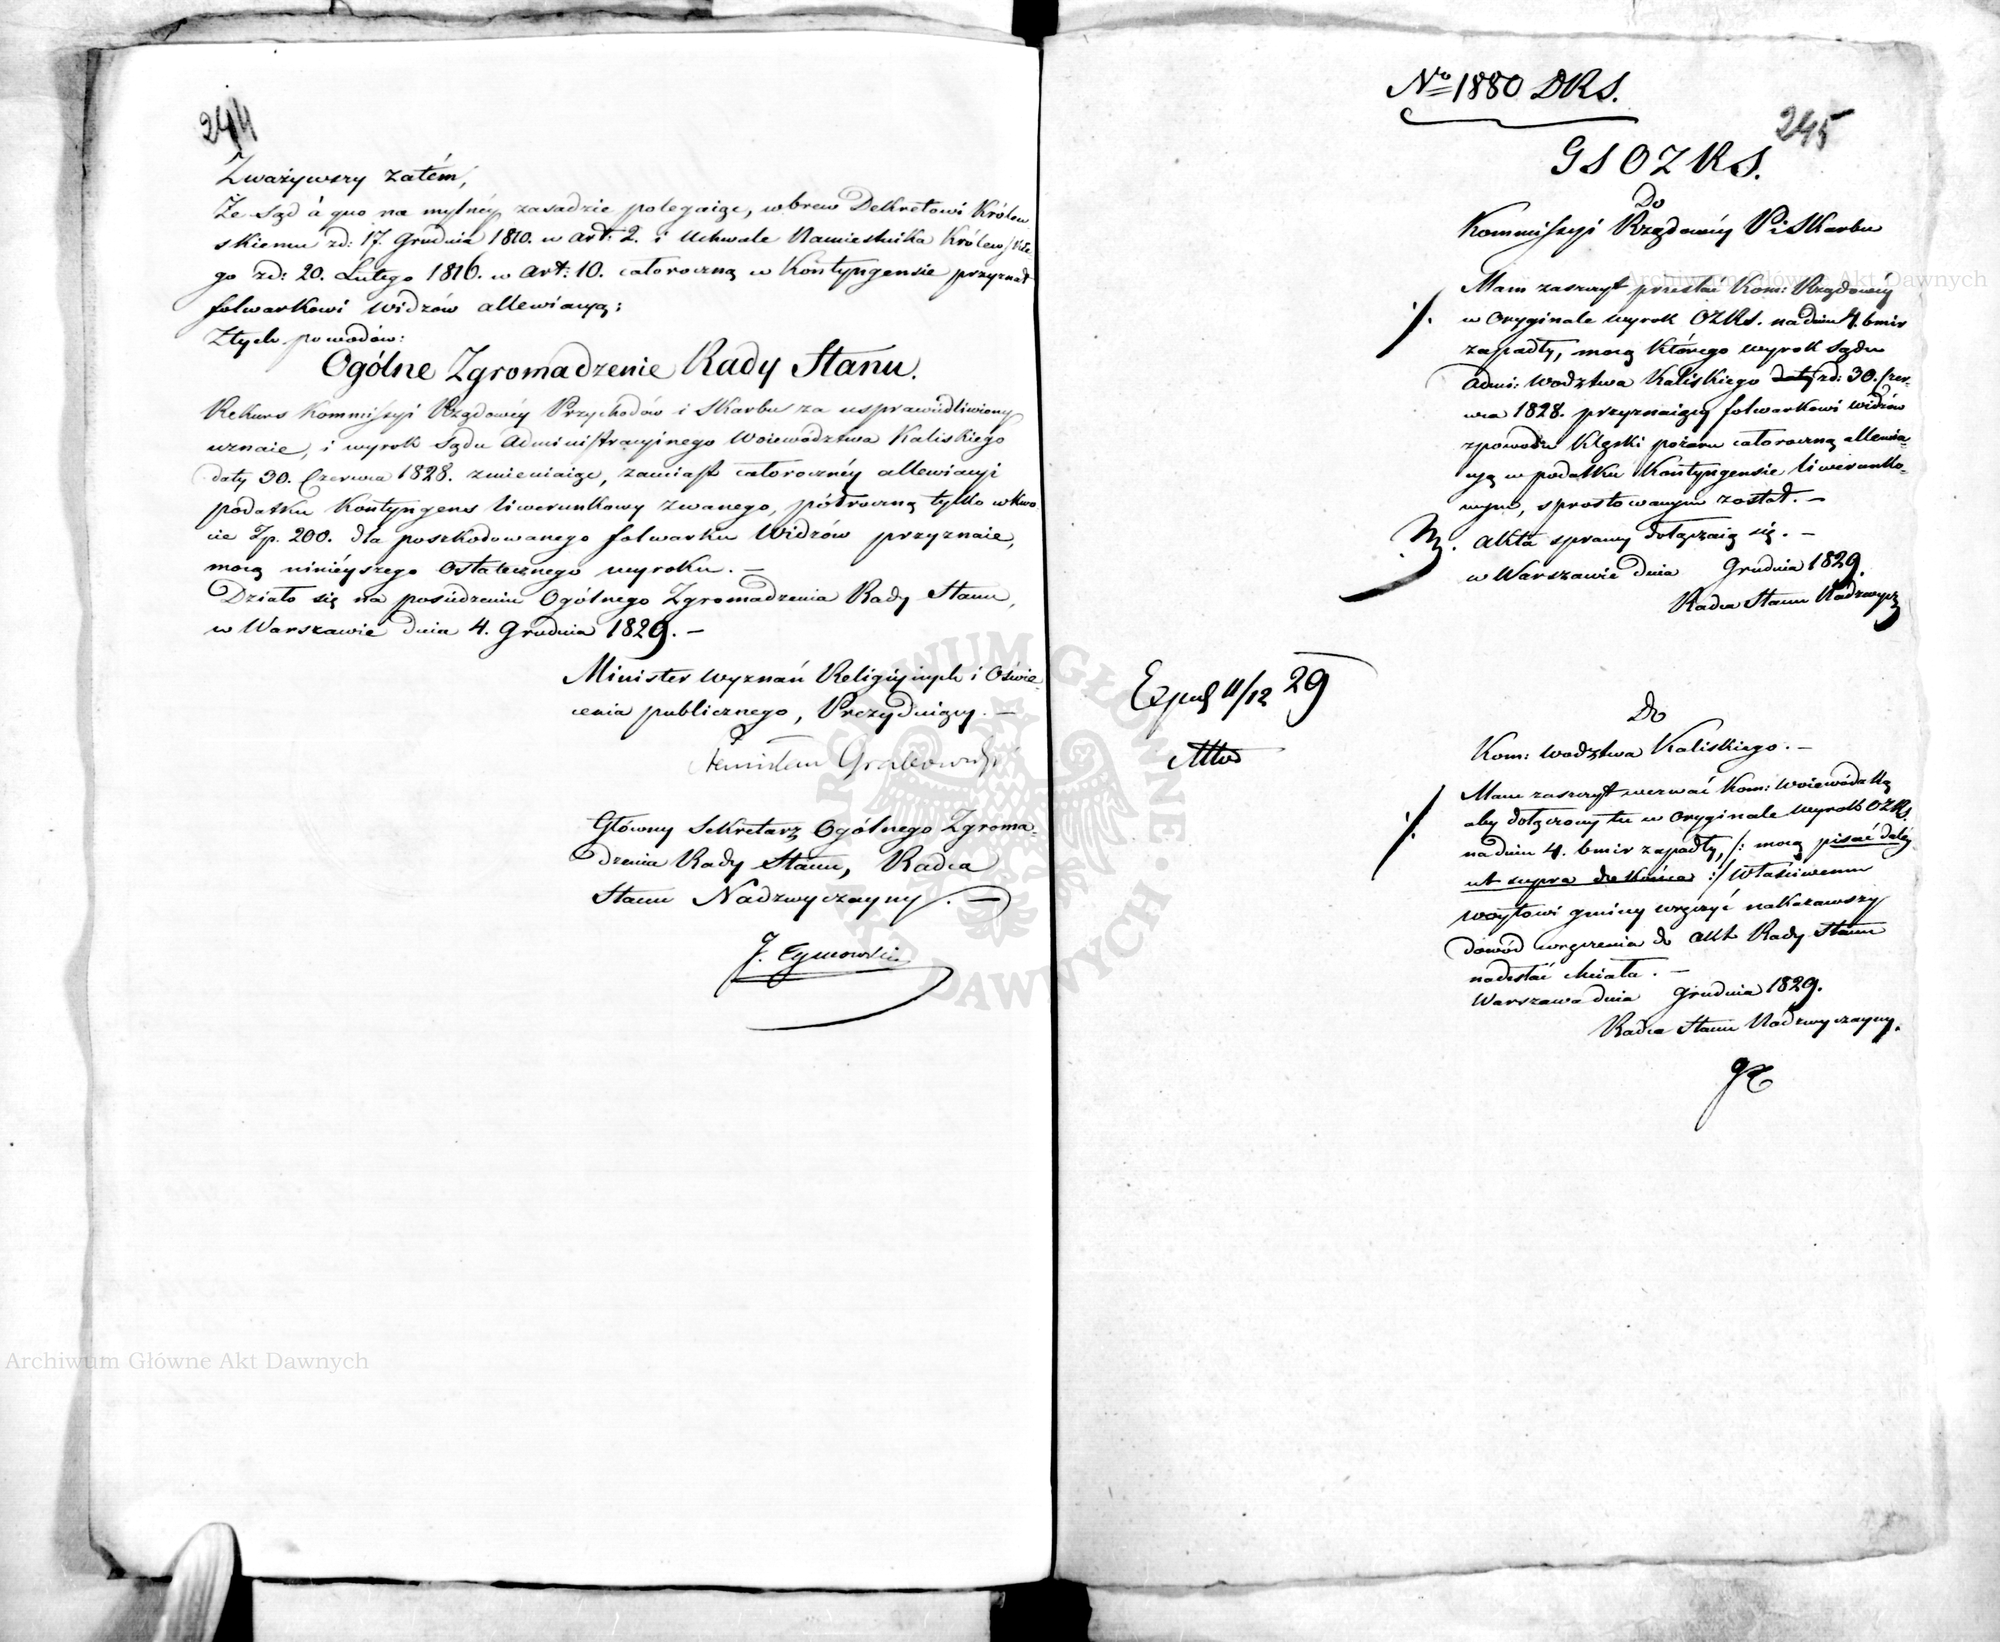 244
Zważywszy zatém,
Że Sąd à quo na mylnéy zasadzie polegaiąc, wbrew Dekretowi Królew
skiemu zd: 17. Grudnia 1810. w art: 2. i Uchwale Namiestnika Królewskie
go zd: 20. Lutego 1816. w art: 10. całoroczną w Kontyngensie przyznał
folwarkowi Widzów allewiacyą;
Ztych powodów:
Ogólne Zgromadzenie Rady Stanu.
Rekurs Kommissyi Rządowéy Przychodów i Skarbu za usprawiedliwiony
uznaie, i wyrok Sądu Administracyinego Woiewództwa Kaliskiego
daty 30. Czerwca 1828. zmieniaiąc, zamiast całorocznéy allewiacyi
podatku Kontyngens liwerunkowy zwanego, półroczną tylko w kwo
cie Zp. 200. dla poszkodowanego folwarku Widzów przyznaie,
mocą ninieyszego Ostatecznego wyroku. —
Działo się na posiedzeniu Ogólnego Zgromadzenia Rady Stanu,
w Warszawie dnia 4. Grudnia 1829. —
Minister Wyznań Religiynych i Oświe
cenia publicznego, Prezyduiący. —
Stanisław Grabowski
Główny Sekretarz Ogólnego Zgroma-
dzenia Rady Stanu, Radca
Stanu Nadzwyczayny. —
J. Tymowski
No 1880 DRS.
245
GSOZRS.
Do
Kommissyi Rządowéy P i Skarbu
Mam zaszczyt przesłać Kom: Rządowéy
w Oryginale wyrok OZRS. na dniu 4. bmir
zapadły, mocą którego wyrok Sądu
Admi: Wodztwa Kaliskiego zd: 30. Czer-
wca 1828. przyznaiący folwarkowi Widzów
zpowodu klęski pożaru całoroczną allewia-
cyą w podatku Kontyngensie liwerunko-
wym, sprostowanym został. —
Akta sprawy dołączaią się. —
w Warszawie dnia Grudnia 1829.
Radca Stanu Nadzwycz
Exped 11/12 29
Do
Kom: Wodztwa Kaliskiego. —
Mam zaszczyt wezwać Kom: Woiewódzką
aby dołączony tu w oryginale wyrok OZRS.
na dniu 4. bmir zapadły, /: mocą pisać daléy
ut supra do końca :/ Właściwemu
Woytowi gminy wręczyć nakazawszy
dowód wręczenia do Akt Rady Stanu
nadesłać chciała. —
Warszawa dnia Grudnia 1829.
Radca Stanu Nadzwyczayny.
Archiwum Główne Akt Dawnych
Archiwum Główne Akt Dawnych
ARCHIWUM GŁÓWNE AKT DAWNYCH